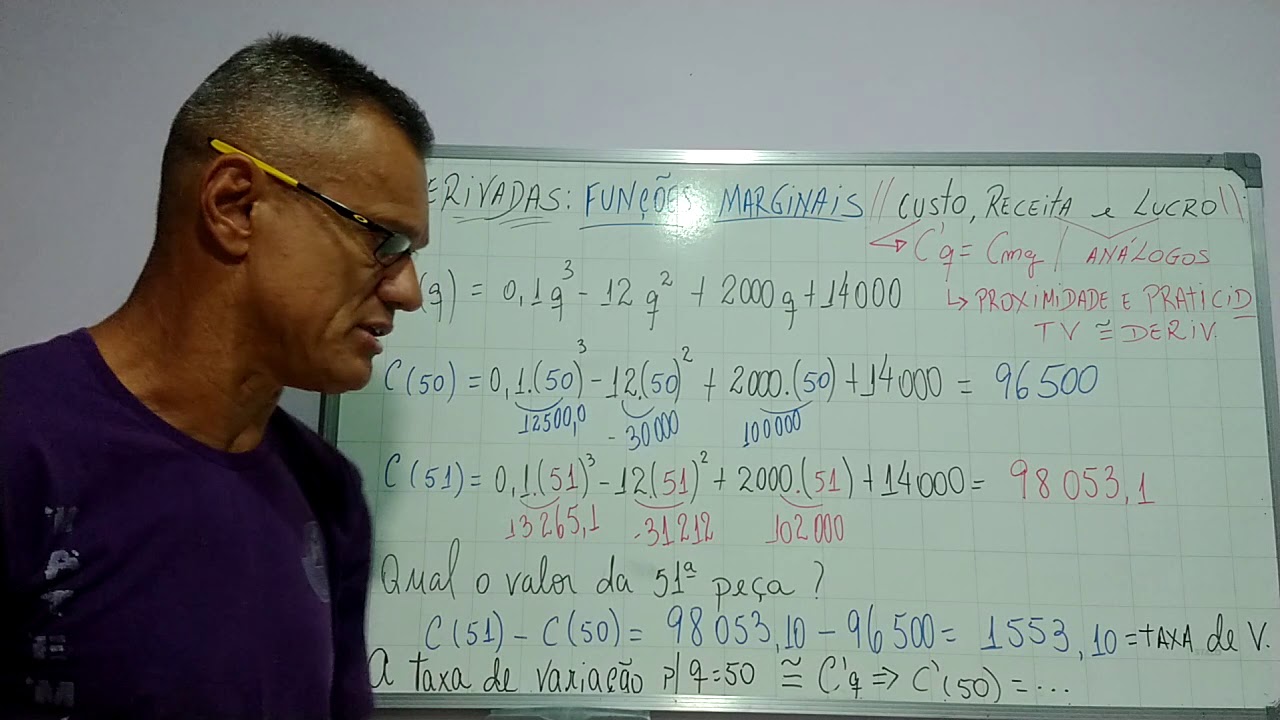 ERIVADAS: FUNÇÕES MARGINAIS // CUSTO, RECEITA e LUCRO //
C'q = Cmg / ANÁLOGOS
(q) = 0,1q³ - 12q² + 2000q + 14000
↳ PROXIMIDADE E PRATICID
TV ≅ DERIV.
C(50) = 0,1.(50)³ - 12.(50)² + 2000.(50) + 14000 = 96500
12500,0 - 30000 100000
C(51) = 0,1.(51)³ - 12.(51)² + 2000.(51) + 14000 = 98053,1
13265,1 -31212 102000
Qual o valor da 51ª peça?
C(51) - C(50) = 98053,10 - 96500 = 1553,10 = TAXA de V.
A taxa de variação p/ q=50 ≅ C'q ⇒ C'(50) = ...